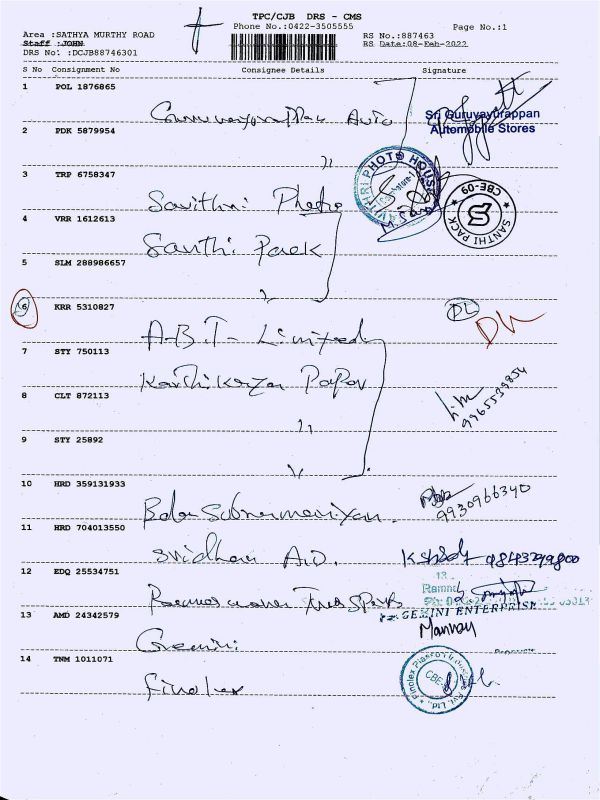 TPC/CJB DRS - CMS
Phone No.:0422-3505555
Page No.:1
Area :SATHYA MURTHY ROAD
RS No.:887463
Staff :JOHN
RS Date:08-Feb-2022
DRS No. :DCJB88746301
S No Consignment No Consignee Details Signature
1 POL 1876865
Guruvayurappan Auto
Sri Guruvayurappan
Automobile Stores
2 PDK 5879954
"
3 TRP 6758347
Savithri Photo
SAVITHRI PHOTO HOUSE
4 VRR 1612613
Santhi Pack
SANTHI PACK
CBE-09
5 SLM 288986657
"
6 KRR 5310827
A-B-T- Limited
DL
7 STY 750113
Karthikeyan Papor
8 CLT 872113
"
9965539854
9 STY 25892
"
10 HRD 359131933
Bala Subramaniyan.
9930966340
11 HRD 704013550
Sridhar A.O. 9843299800
12 EDQ 25534751
Ramnd
13 AMD 24342579
GEMINI ENTERPRISE
Gemini
14 TNM 1011071
Finolex
CBE